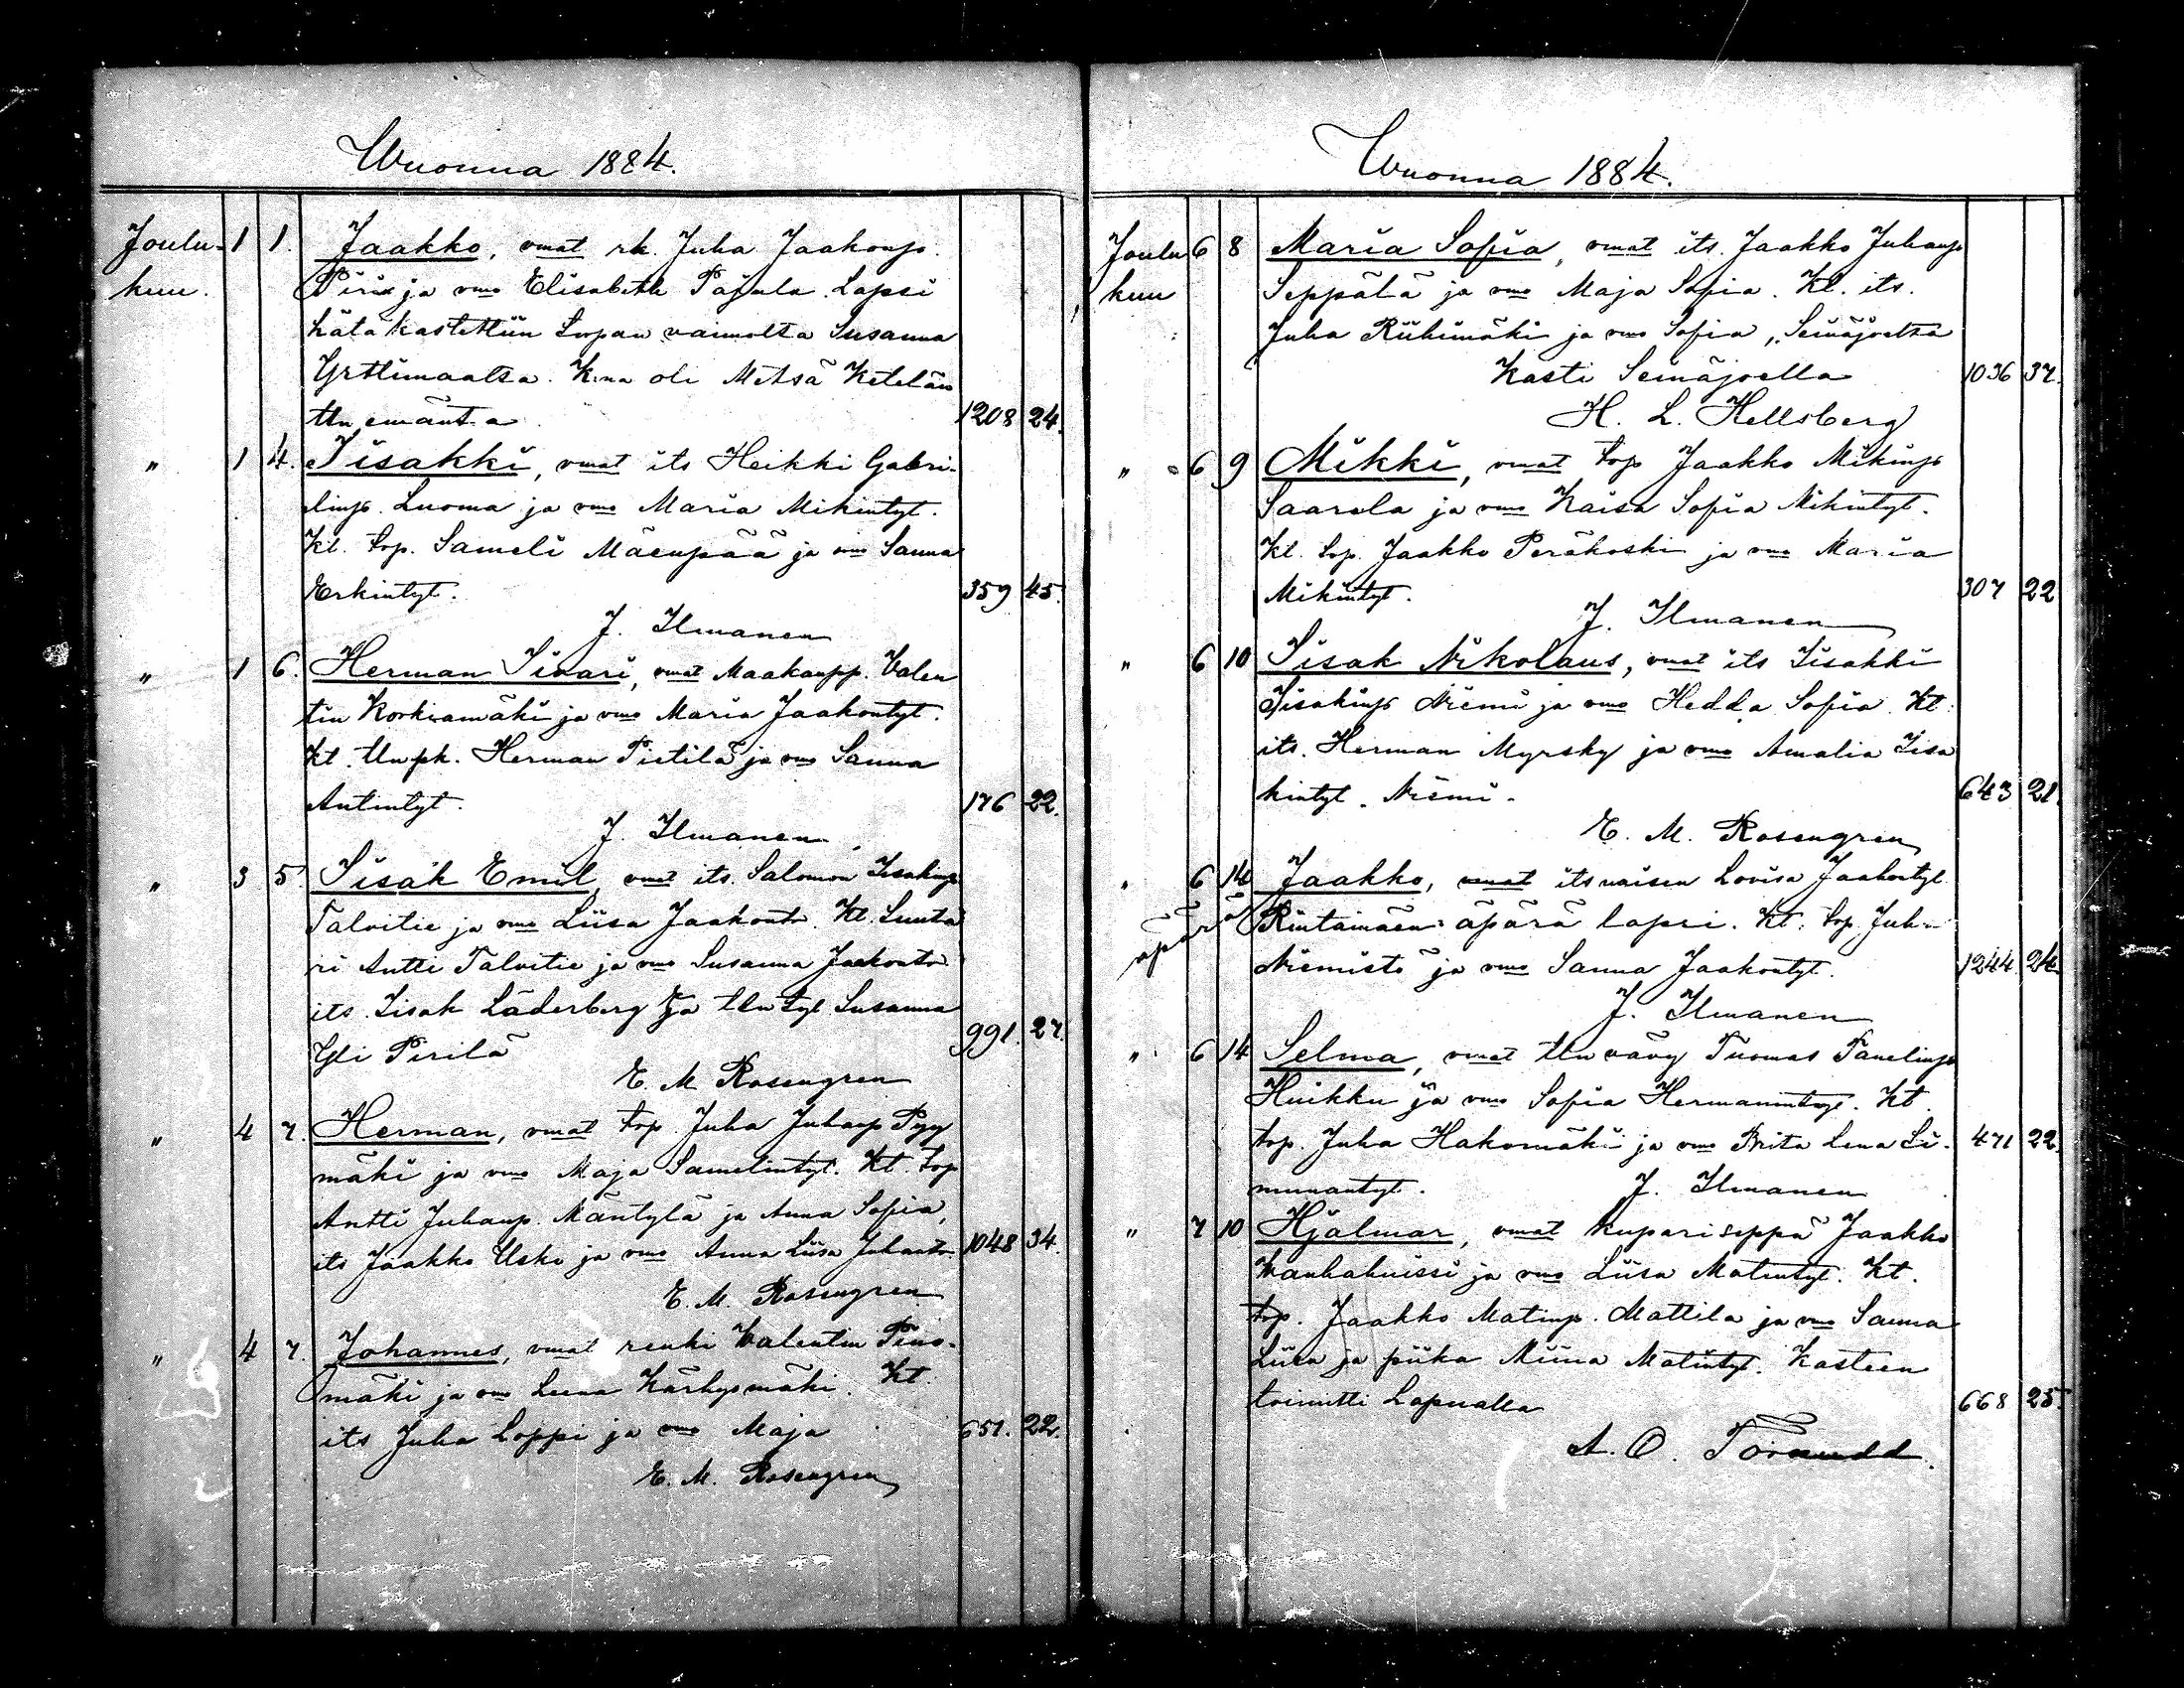 Wuonna 1884.
Joulu- 1 1. Jaakko, vmat rk. Juha Jaakonp.
kuu. Piri ja vmo Elisabeth Pajula. Lapsi
hätäkastettiin torpan vaimolta Susanna
Yrttimaalta. K:na oli Metsä Ketelän
tln emäntä 1208 24.
" 1 4. Iisakki, vmat its Heikki Gabri-
elinp. Luoma ja vmo Maria Mikintyt.
Kt. top. Sameli Mäenpää ja vmo Sanna
Erkintyt. 359 45.
J. Ilmanen
" 1 6. Herman Iivari, vmat Maakaupp. Valen
tin Korkiamäki ja vmo Maria Jaakontyt.
Kt. tlnpk. Herman Pietilä ja vmo Sanna
Antintyt. 176 22.
J. Ilmanen
" 3 5. Iisak Emil, vmat its. Salomon Iisakinp
Talvitie ja vmo Liisa Jaakontr. Kt. Sunta
ri Antti Talvitie ja vmo Susanna Jaakontr
its. Iisak Läderberg ja tln tyt Susanna
Yli Pirilä 991. 27.
E. M. Rosengren
" 4 7. Herman, vmat top. Juha Juhanp Pyy
mäki ja vmo Maja Samelintyt. Kt. top
Antti Juhanp. Mäntylä ja Anna Sofia,
its Jaakko Usko ja vmo Anna Liisa Juhantr. 1048 34.
E. M. Rosengren
" 4 7. Johannes, vmat renki Valentin Pino-
mäki ja vmo Leena Kärkysmäki. Kt.
its Juha Loppi ja vmo Maja 651. 22.
E. M. Rosengren
Wuonna 1884.
Joulu 6 8 Maria Sofia, vmat its. Jaakko Juhanp
kuu Seppälä ja vmo Maja Sofia. Kt. its.
Juha Riihimäki ja vmo Sofia, Seinäjoelta
Kasti Seinäjoella 1036 37.
H. L. Hellsberg
" 6 9 Mikki, vmat top Jaakko Mikinp
Saarela ja vmo Kaisa Sofia Mikintyt.
Kt. top. Jaakko Peräkoski ja vmo Maria
Mikintyt. 307 22
J. Ilmanen
" 6 10 Iisak Nikolaus, vmat its Iisakki
Iisakinp Niemi ja vmo Hedda Sofia. Kt.
its. Herman Myrsky ja vmo Amalia Iisa
kintyt. Niemi. 643 21.
E. M. Rosengren
" 6 14 Jaakko, vmat itsnaisen Lovisa Jaakontyt.
äpärä Rintamäen äpärä lapsi. Kt. top. Juha
Niemistö ja vmo Sanna Jaakontyt. 1244. 24.
J. Ilmanen
" 6 14 Selma, vmat tln vävy Tuomas Tanelinp
Huikku ja vmo Sofia Hermanintyt. Kt.
top. Juha Hakomäki ja vmo Brita Lena Si- 471 22.
munantyt. J. Ilmanen
" 7 10 Hjalmar, vmat kupariseppä Jaakko
Wanhakuissi ja vmo Liisa Matintyt. Kt.
top. Jaakko Matinp. Mattila ja vmo Sanna
Liisa ja piika Miina Matintyt. Kasteen
toimitti Lapualla 668 25.
A. O. Törnudd.